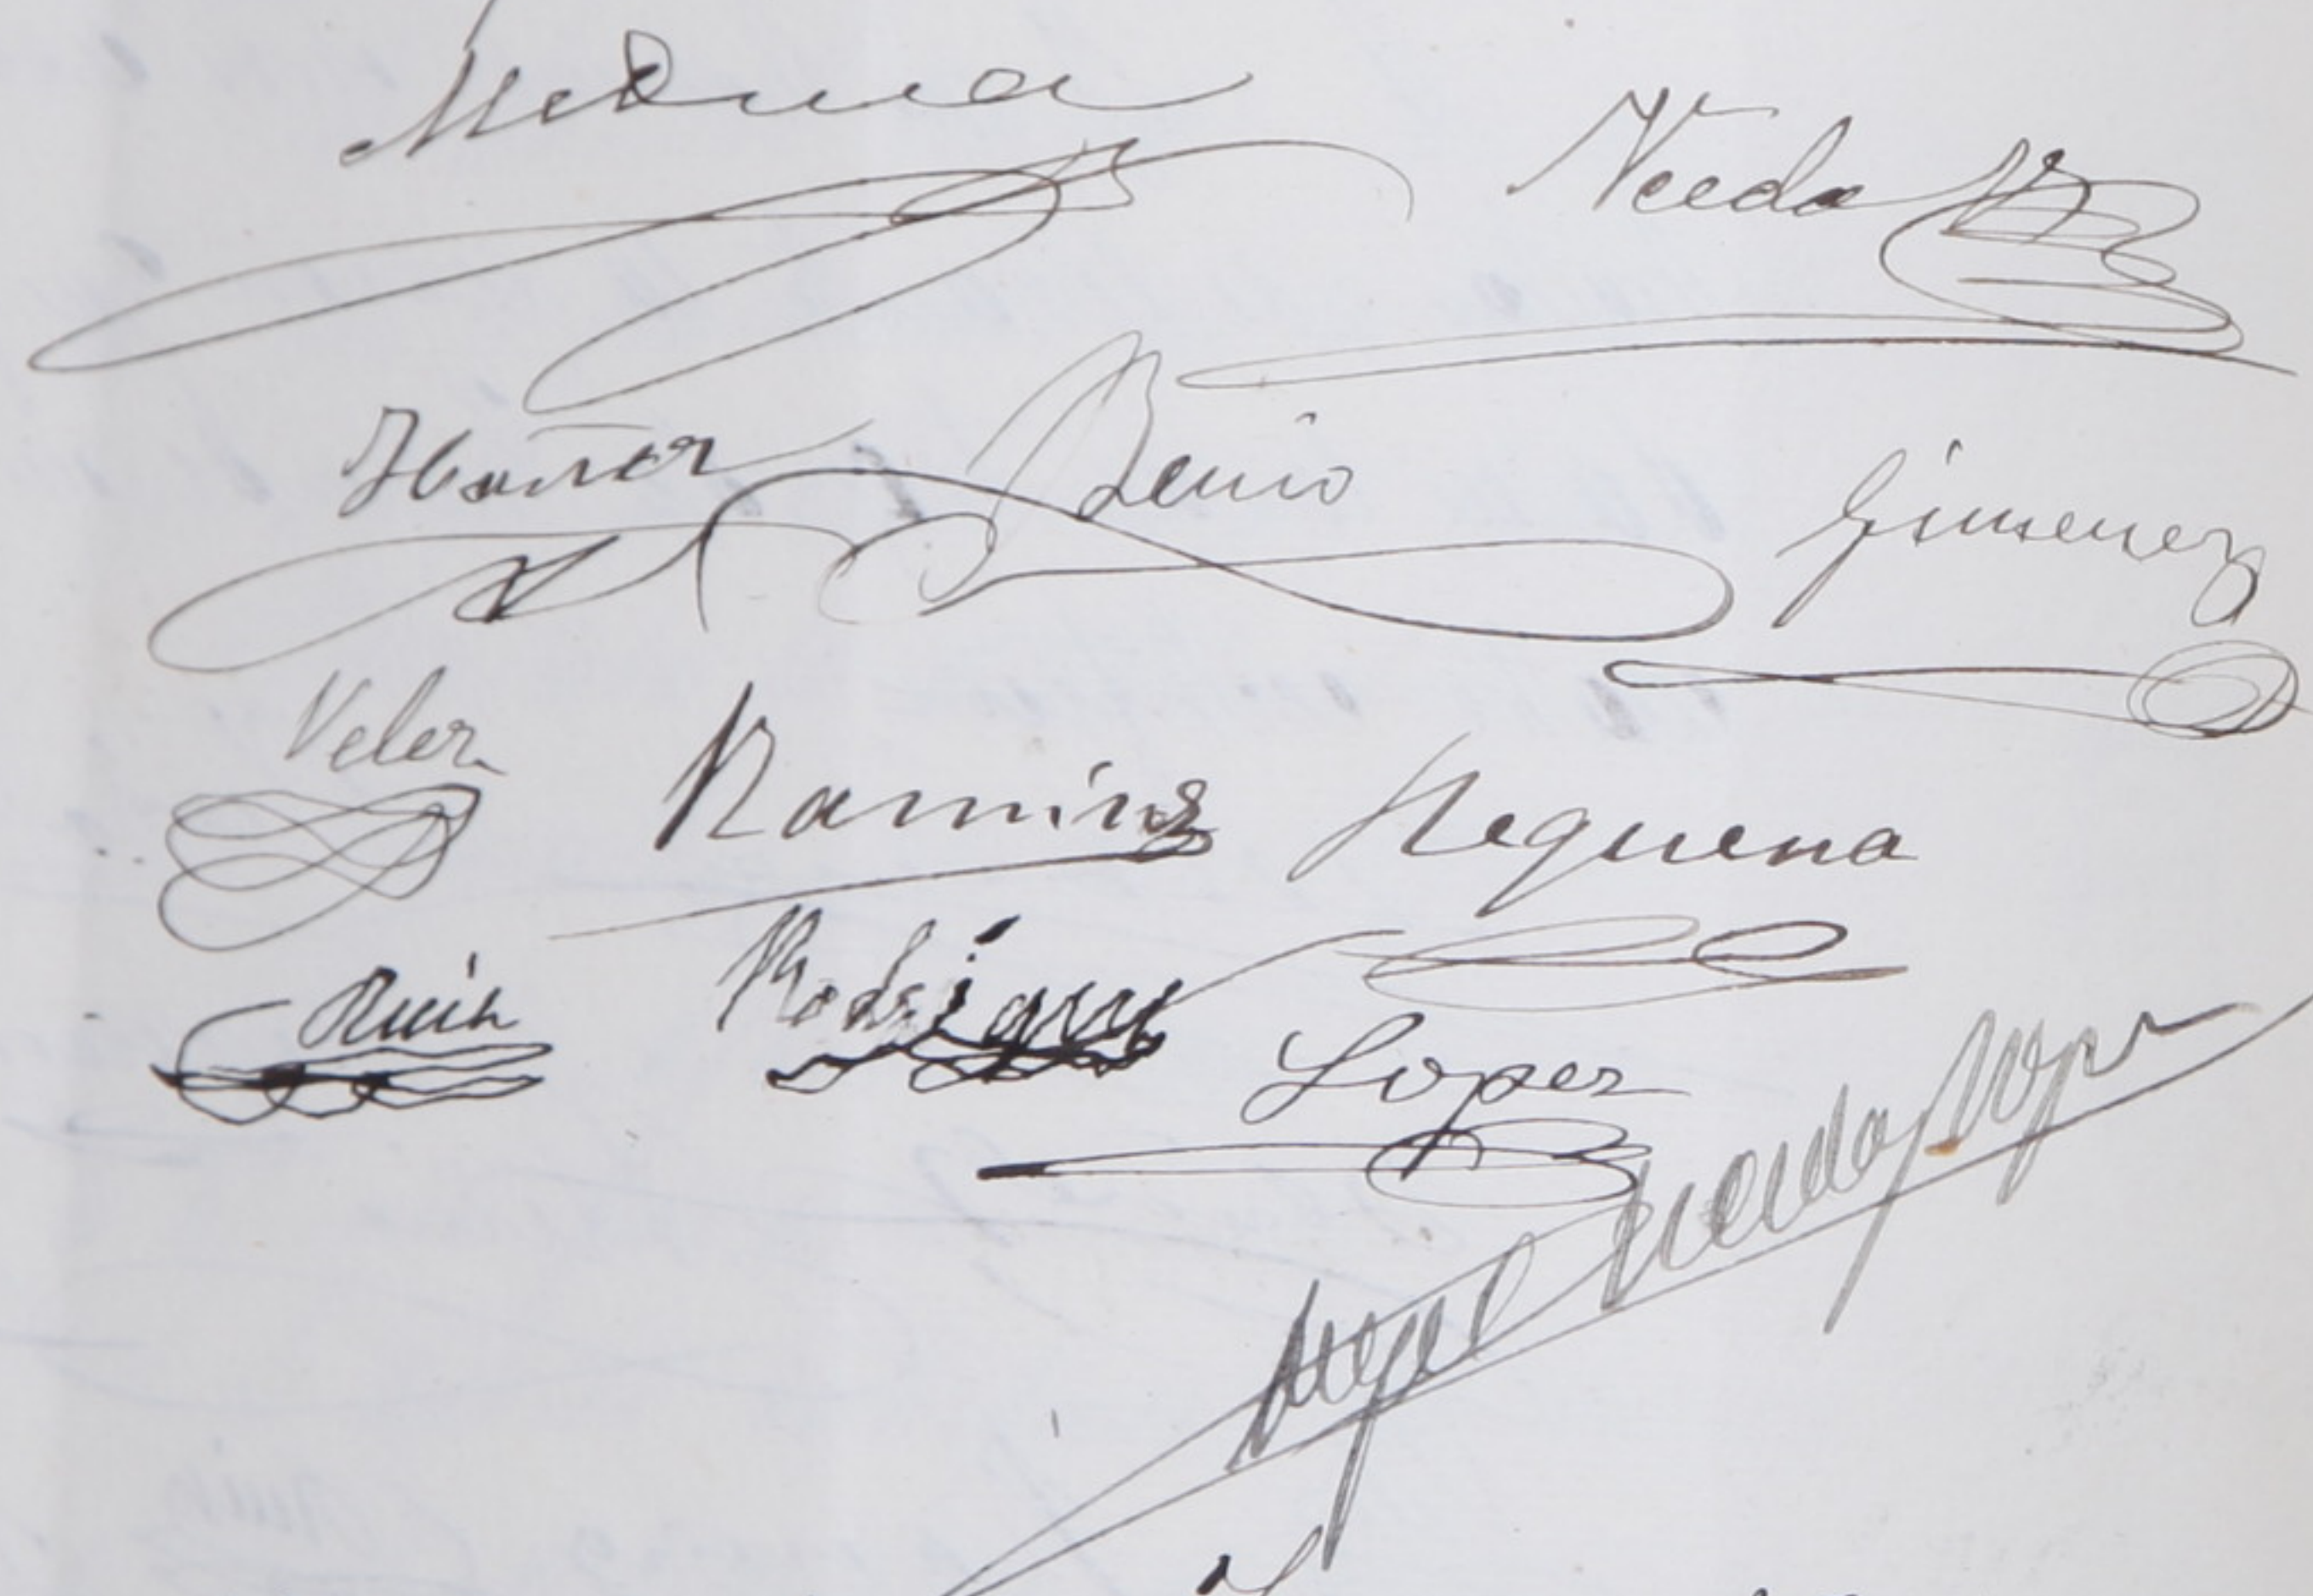 Medina
Needa
Ibañez Benio Gimenez
Velez Ramirez Requena
Ruiz Rodriguez
Lopez
Angel